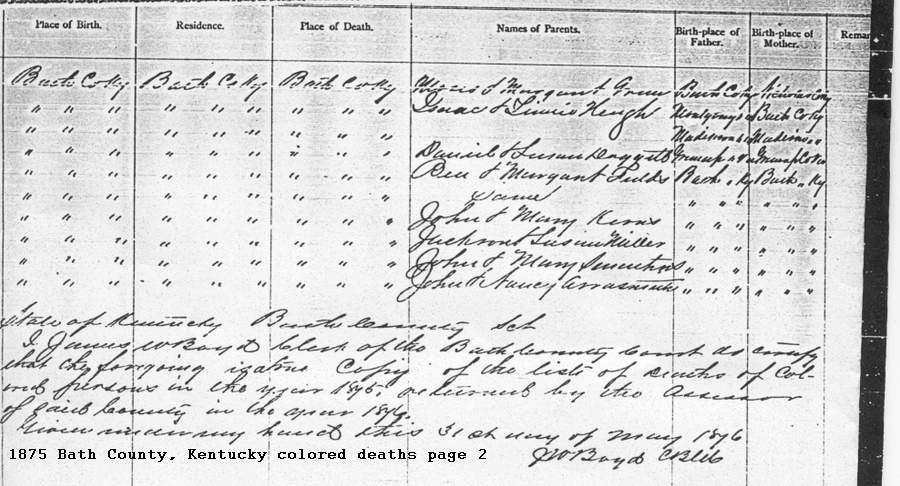 Place of Birth. Residence. Place of Death. Names of Parents. Birth-place of Father. Birth-place of Mother. Remar
Bath Co Ky Bath Co Ky Bath Co Ky & Margant Bath Co Ky Nicholas Co Ky
" " " " " " " " " Isaac & Hugh Montgomery Bath Co Ky
" " " " " " " " " Madison Madison " "
" " " " " " " " " Daniel & Susan Daggett Greenup
" " " " " " " " " Ben & Margant Fields Bath " Ky Bath " Ky
" " " " " " " " " Same " " " " " "
" " " " " " " " " John & Mary Kerns " " " " " "
" " " " " " " " " Jackson & Susan Miller " " " " " "
" " " " " " " " " John & Mary " " " " " "
" " " " " " " " " John & Nancy Arrasmith " " " " " "
State of Kentucky Bath County Sct
I James W Boyd Clerk of the Bath County Court do certify
that the forgoing is a true Copy of the list of Deaths of Col-
ored persons in the year 1875. returned by the Assessor
of said County in the year 1876.
Given under my hand this 31st day of May 1876
J W Boyd
1875 Bath County, Kentucky colored deaths page 2